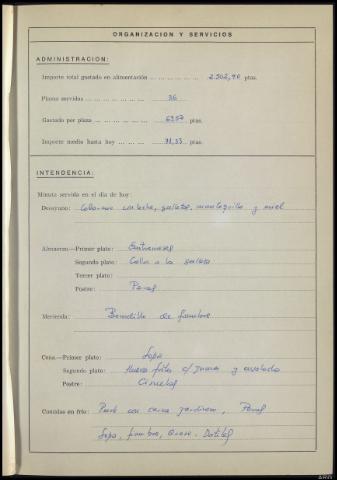 ORGANIZACION Y SERVICIOS
ADMINISTRACION:
Importe total gastado en alimentación ... ... ... ... ... 2.502,90 ptas.
Plazas servidas ... ... ... ... ... ... 36
Gastado por plaza ... ... ... ... ... 69,52 ptas.
Importe medio hasta hoy ... ... ... 71,33 ptas.
INTENDENCIA:
Minuta servida en el día de hoy:
Desayuno: con leche, galletas, mantequilla y miel
Almuerzo.—Primer plato: Entremeses
Segundo plato: a la
Tercer plato:
Postre: Peras
Merienda: Bocadillo de fiambre
Cena.—Primer plato: Sopa
Segundo plato: Huevos fritos c/ y ensalada
Postre: Ciruelas
Comidas en frío: con carne jardinera, Peras
Sopa, fiambre, Queso, Datiles